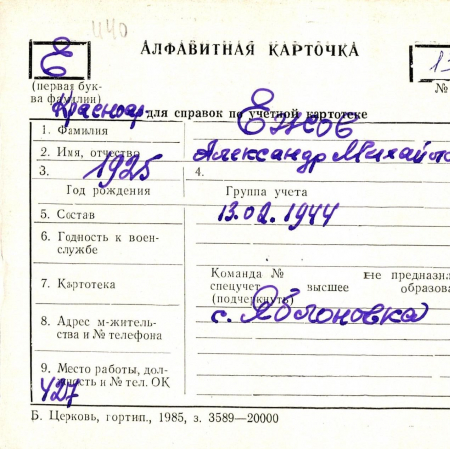 ЦЧО
Е
АЛФАВИТНАЯ КАРТОЧКА
13
(первая бук-
ва фамилии)
№
Краснояр.
для справок по учетной картотеке
1. Фамилия
Ежов
2. Имя, отчество
Александр Михайло
3.
1925
4.
Год рождения
Группа учета
5. Состав
13.02.1944
6. Годность к воен-
службе
7. Картотека
Команда №
не предназна
спецучет высшее образова
(подчеркнуть)
8. Адрес м-житель-
ства и № телефона
с. Яблоновка
9. Место работы, дол-
жность и № тел. ОК
427
Б. Церковь, гортип., 1985, з. 3589—20000